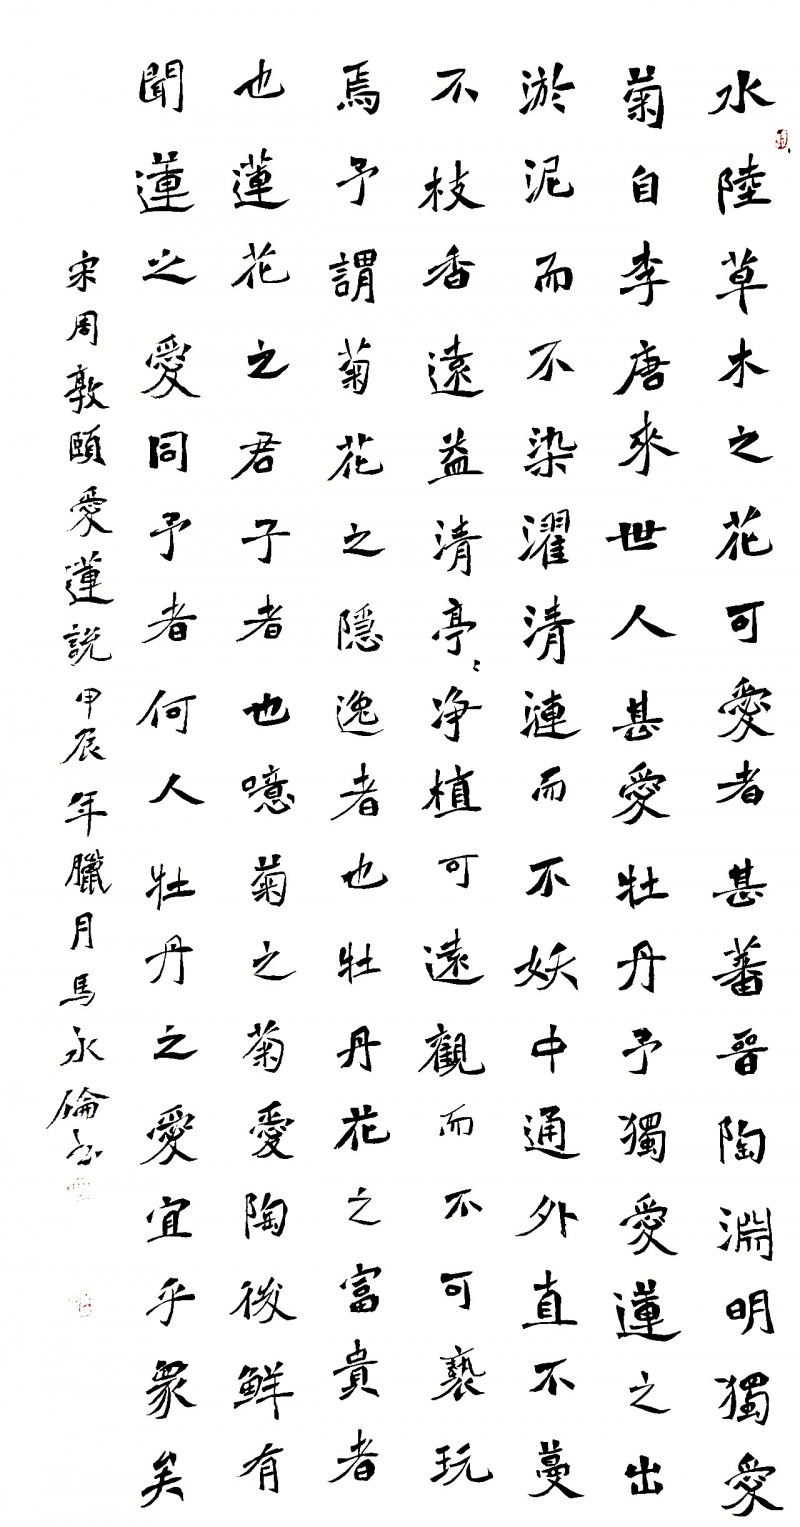 水陸草木之花可愛者甚蕃晉陶淵明獨愛
菊自李唐來世人甚愛牡丹予獨愛蓮之出
淤泥而不染濯清漣而不妖中通外直不蔓
不枝香遠益清亭〻净植可遠觀而不可褻玩
焉予謂菊花之隱逸者也牡丹花之富貴者
也蓮花之君子者也噫菊之菊愛陶後鮮有
聞蓮之愛同予者何人牡丹之愛宜乎衆矣
宋周敦頤愛蓮說甲辰年臘月馬永書